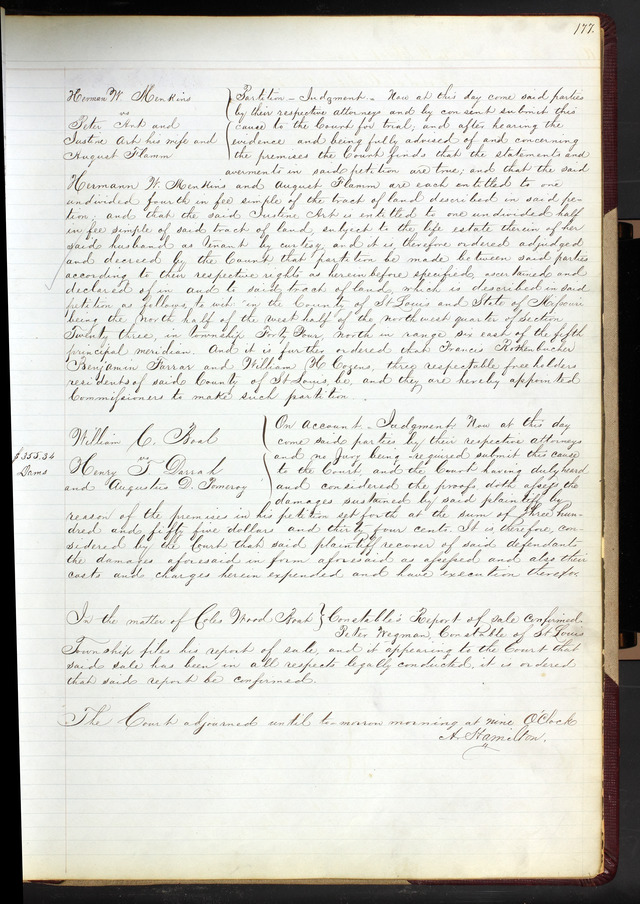 177.
Herman W. Menkins
vs
Peter Art and
Justine Art his wife and
August Flamm
Partition - Judgment - Now at this day come said parties
by their respective attorneys and by consent submit this
cause to the Court for trial, and after hearing the
evidence and being fully advised of and concerning
the premises the Court finds that the statements and
averments in said petition are true, and that the said
Hermann W. Menkins and August Flamm are each entitled to one
undivided fourth in fee simple of the tract of land described in said pe-
tion, and that the said Justine Art is entitled to one undivided half
in fee simple of said tract of land, subject to the life estate therein of her
said husband as tenant by curtesy, and it is, therefore ordered adjudged
and decreed by the Court that partition be made between said parties
according to their respective rights as herein before specified, ascertained and
declared of in and to said tract of land, which is described in said
petition as follows, to wit in the County of St Louis and State of Missouri
being the North half of the west half of the northwest quarter of Section
Twenty three, in township Forty Four, North in range six east of the fifth
principal meridian. And it is further ordered that Francis Rothenbucher
Benjamin Farrar and William H Cozens, three respectable freeholders
residents of said County of St Louis, be, and they are hereby appointed
Commissioners to make such partition.
$355.34
Dams
William C. Boal
vs
Henry T Darrah
and Augustus D. Pomeroy
On Account - Judgment. Now at this day
come said parties by their respective attorneys
and no Jury being required submit this cause
to the Court and the Court having duly heard
and considered the proofs, doth assess the
damages sustained by said plaintiff by
reason of the premises in his petition set forth at the sum of Three hun-
dred and fifty five dollars and thirty four cents. It is therefore, con-
sidered by the Court that said plaintiff recover of said defendants
the damages aforesaid in form aforesaid as assessed and also their
costs and charges herein expended and have execution therefor.
In the matter of Coles Wood Boat } Constable's Report of sale confirmed.
Peter Wegman, Constable of St Louis
Township files his report of sale, and it appearing to the Court that
said sale has been in all respects legally conducted, it is ordered
that said report be confirmed.
The Court adjourned until to-morrow morning at nine O'Clock
A. Hamilton.